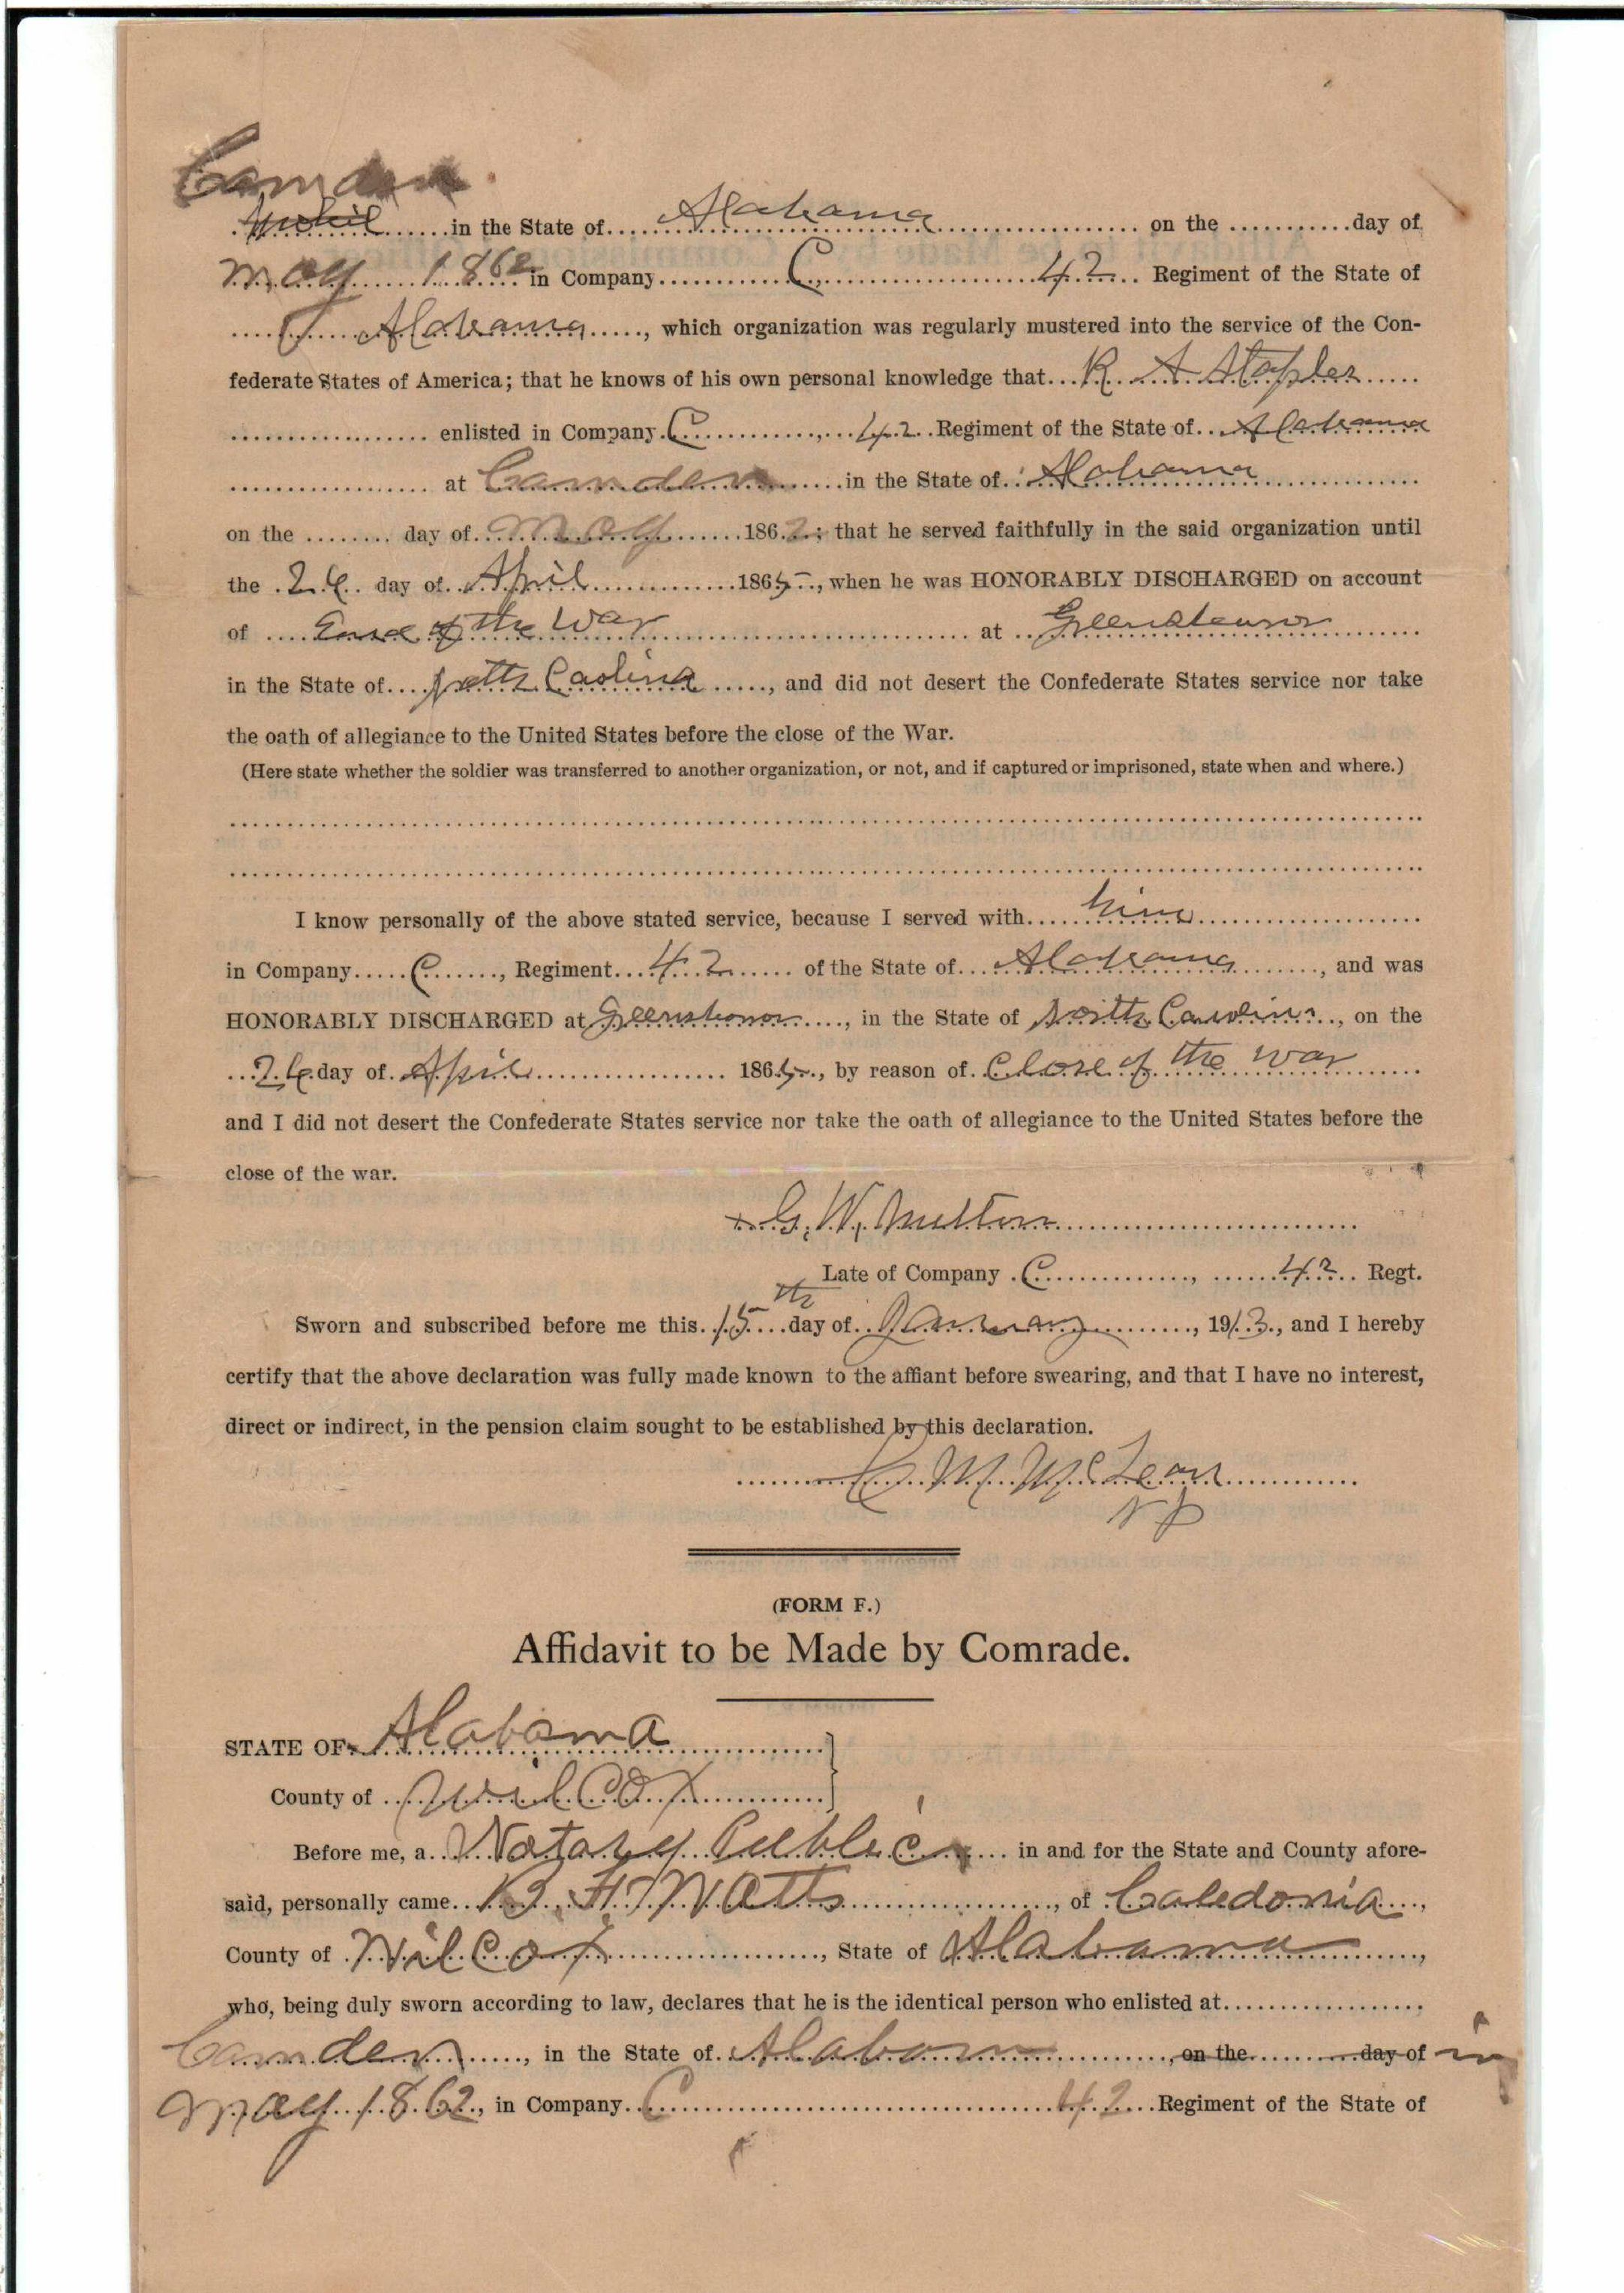 Camden
Mobil in the State of Alabama on the day of
May 1862 in Company C 42 Regiment of the State of
Alabama, which organization was regularly mustered into the service of the Con-
federate States of America; that he knows of his own personal knowledge that R. A Staples
enlisted in Company C, 42 Regiment of the State of Alabama
at Camden in the State of Alabama
on the day of May 1862; that he served faithfully in the said organization until
the 26 day of April 1865, when he was HONORABLY DISCHARGED on account
of of the War at
in the State of North Carolina, and did not desert the Confederate States service nor take
the oath of allegiance to the United States before the close of the War.
(Here state whether the soldier was transferred to another organization, or not, and if captured or imprisoned, state when and where.)
I know personally of the above stated service, because I served with him
in Company C, Regiment 42 of the State of Alabama, and was
HONORABLY DISCHARGED at, in the State of North Carolina, on the
26 day of April 1865, by reason of Close of the War
and I did not desert the Confederate States service nor take the oath of allegiance to the United States before the
close of the war.
x G. W.
Late of Company C, 42 Regt.
Sworn and subscribed before me this 15th day of January, 1913, and I hereby
certify that the above declaration was fully made known to the affiant before swearing, and that I have no interest,
direct or indirect, in the pension claim sought to be established by this declaration.
M. McLean
NP
(FORM F.)
Affidavit to be Made by Comrade.
STATE OF Alabama
County of Wilcox
Before me, a Notary Public in and for the State and County afore-
said, personally came B. F. Watts, of Caledonia,
County of Wilcox, State of Alabama,
who, being duly sworn according to law, declares that he is the identical person who enlisted at
Camden, in the State of Alabama, on the day of in
May 1862, in Company C 42 Regiment of the State of